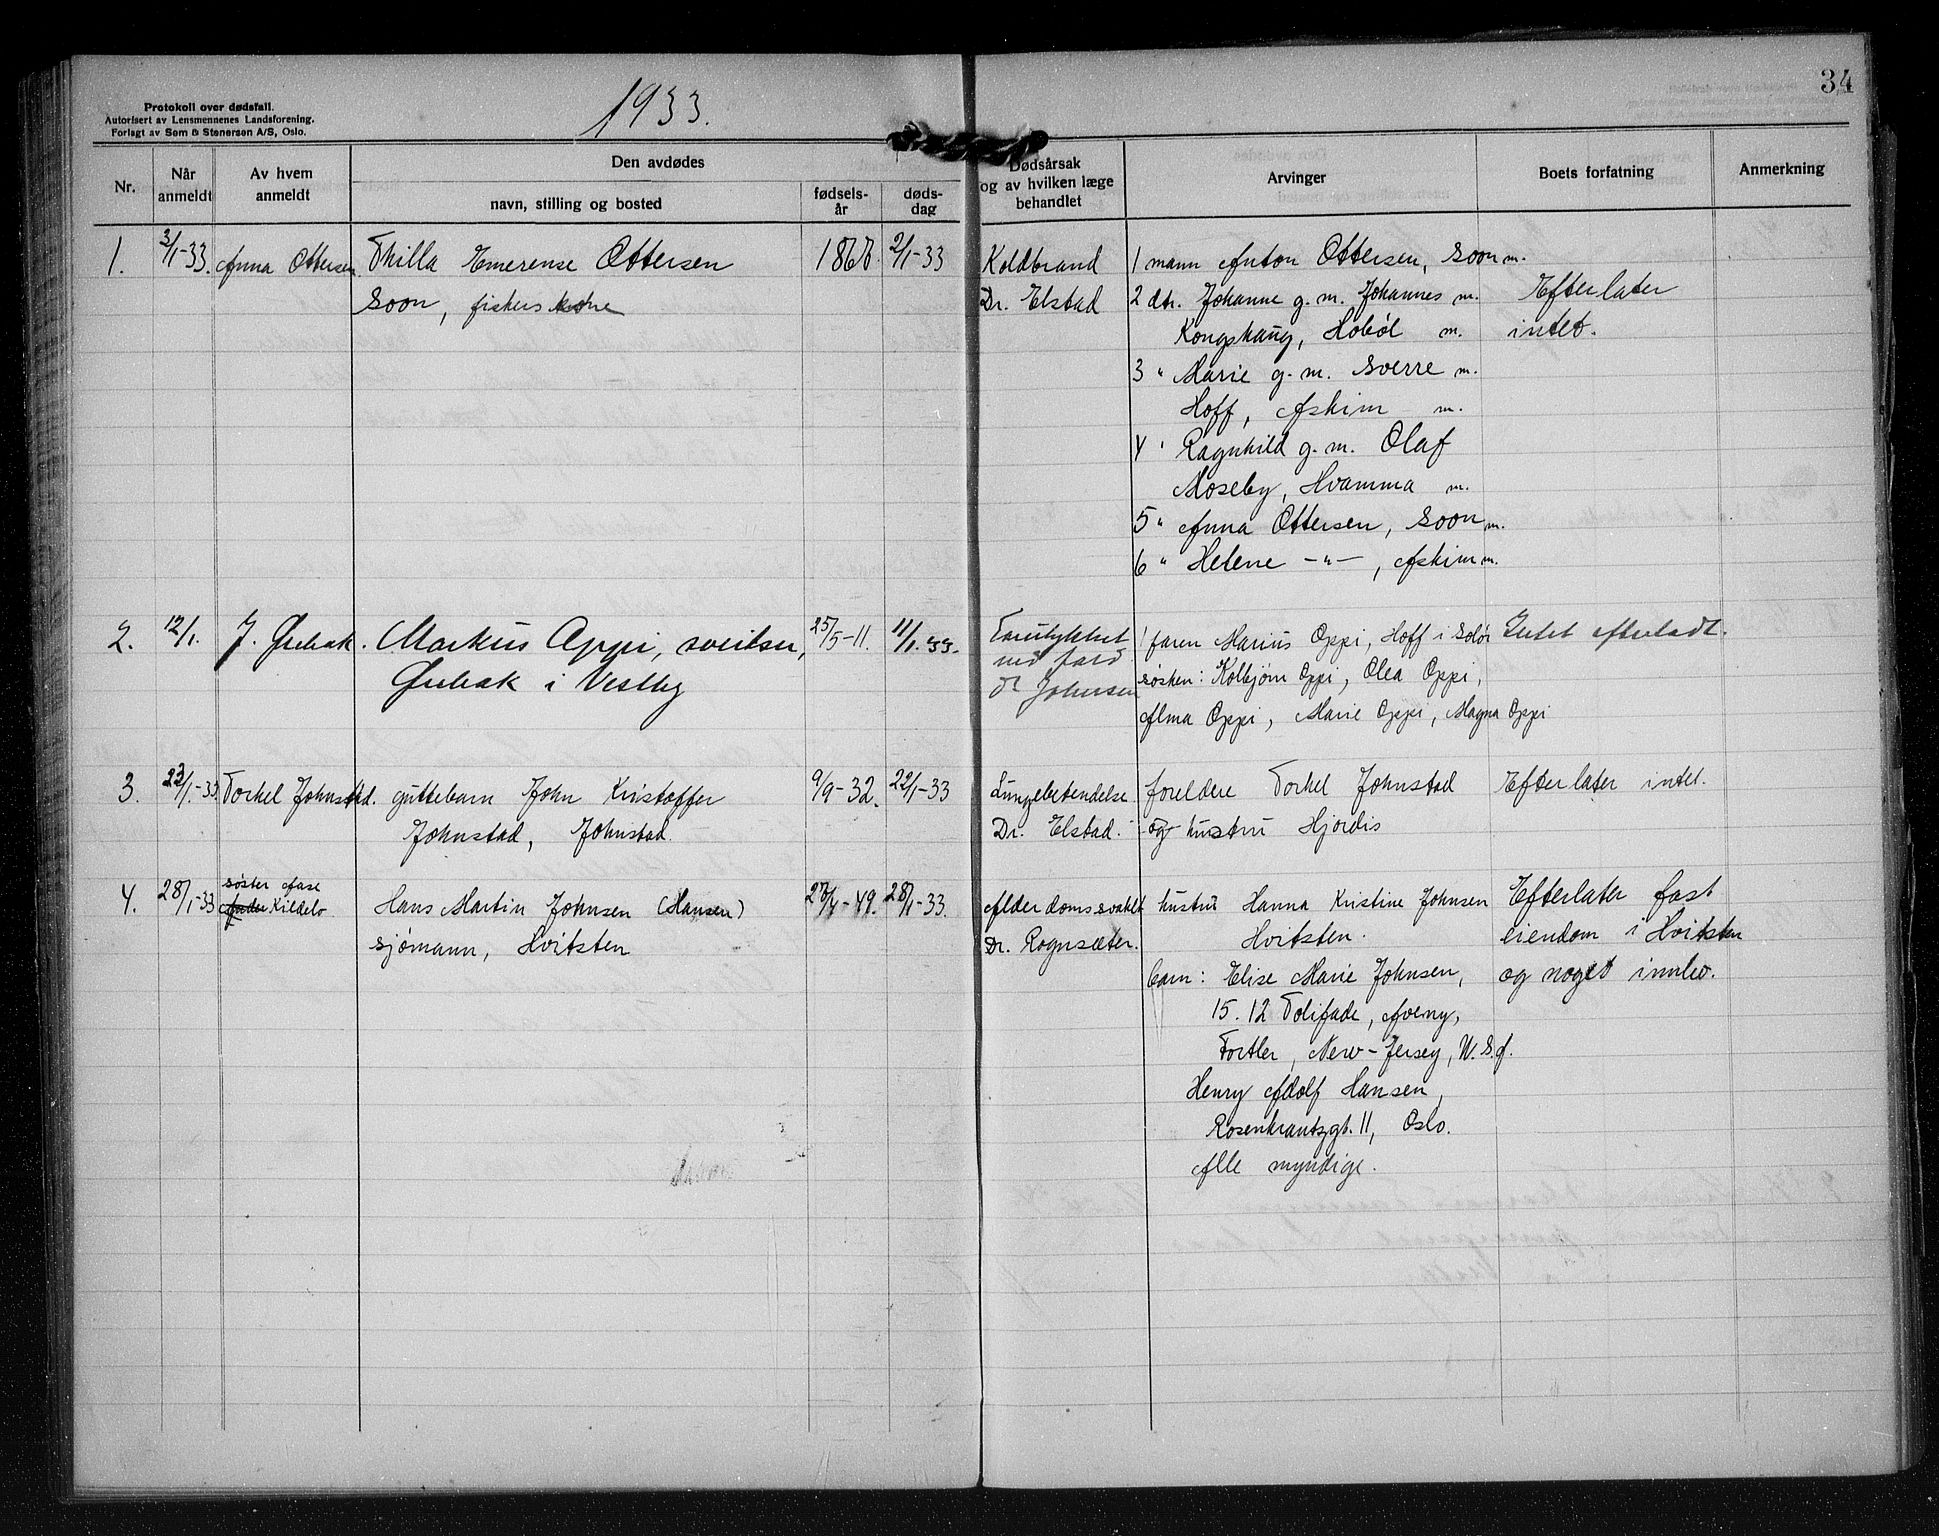 34
1933.
Protokoll over dødsfall.
Autorisert av Lensmennenes Landsforening.
Forlagt av Sem & Stenersen A/S, Oslo.
Nr.
Når anmeldt
Av hvem anmeldt
Den avdødes
navn, stilling og bosted
fødsels-år
døds-dag
Dødsårsak og av hvilken læge behandlet
Arvinger
Boets forfatning
Anmerkning
1. 3/1-33. Anna Ottersen Thilla Emerense Ottersen 2/1-33
Soon, fiskers kone
Koldbrand
Dr. Elstad
1 mann Anton Ottersen, Soon m.
2 dtr. Johanne g.m. Johannes m.
Kongshaug, Hobøl m.
3 " Marie g.m. Sverre m.
Hoff, Askim m.
4 " Ragnhild g.m. Olaf
Moseby, Hvamma m.
5 " Anna Ottersen, Soon m.
6 " Helene -"-, Askim m.
Efterlater
intet.
2. 12/1. J. Ørebak. Markus Oppi, sveitser, 25/5-11. 11/1.33.
Ørebak i Vestby
Forulykket
ved
dr Johnsen
1 faren Marius Oppi, Hoff i Solør
søsken: Kolbjørn Oppi, Olea Oppi,
Alma Oppi, Marie Oppi, Magna Oppi
Intet efterladt.
3. 23/1-33. Torkel Johnstad. guttebarn John Kristoffer 9/9-32. 22/1-33
Johnstad, Johnstad.
Lungebetendelse.
Dr. Elstad.
foreldre Torkel Johnstad
og hustru Hjørdis
Efterlater intet.
4. 28/1-33 søster Aase
Kildebo
Hans Martin Johnsen (Hansen) 28/1-33.
sjømann, Hvitsten
Alderdomssvakhet
Dr. Rognsæter.
hustru Hanna Kristine Johnsen
Hvitsten.
barn: Elise Marie Johnsen,
15.12 Tolifade, Aveny,
Fortler, New-Jersey, U.S.A.
Henry Adolf Hansen,
Rosenkrantzgt. 11, Oslo.
Alle myndige.
Efterlater fast
eiendom i Hvitsten
og noget innbo.